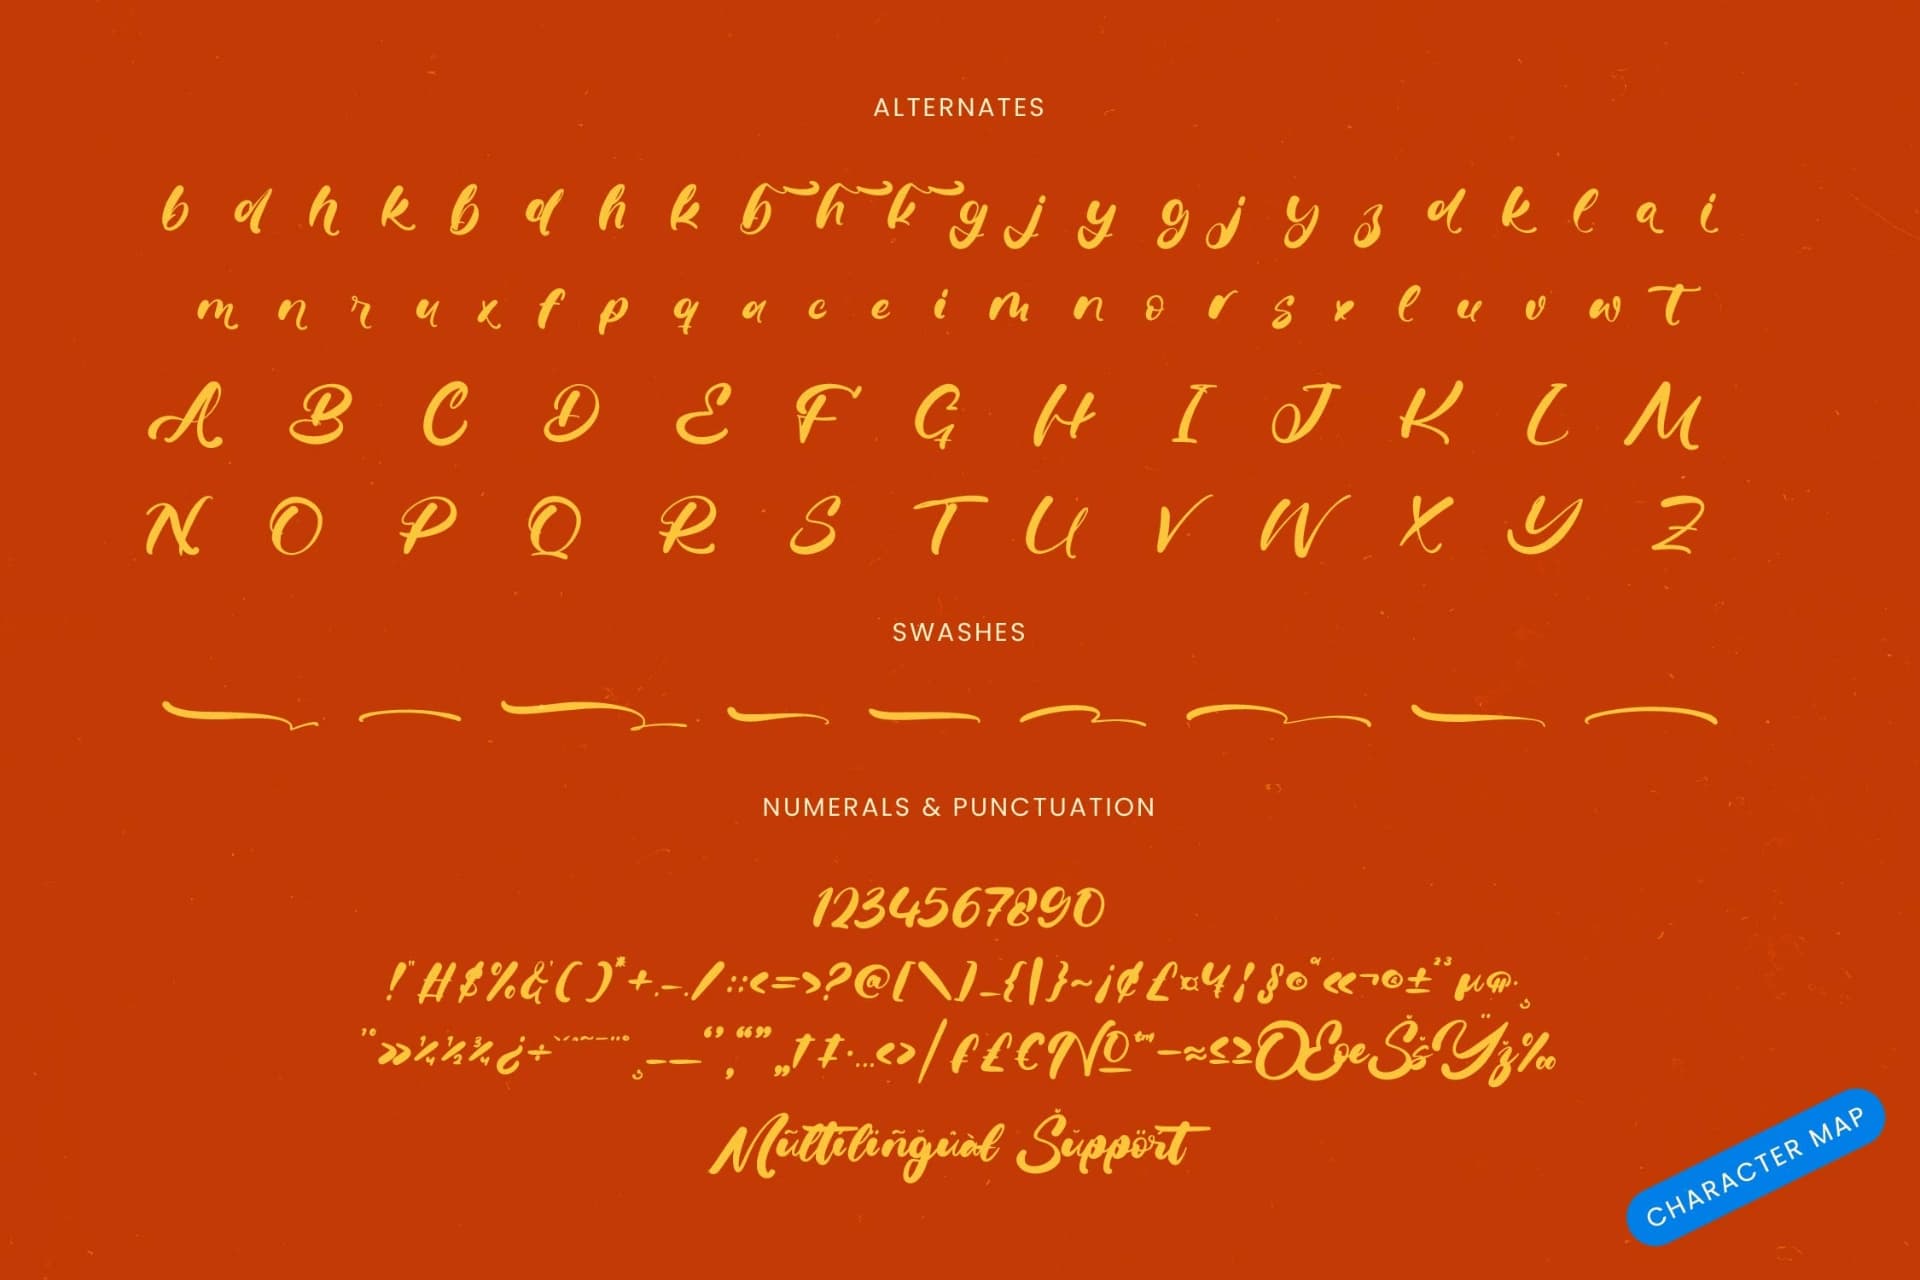 ALTERNATES
b d h k b d h k b h k g j y g j y z d k l a i
m n r u x f p q a c e i m n o r s x l u v w t
A B C D E F G H I J K L M
N O P Q R S T U V W X Y Z
SWASHES
NUMERALS & PUNCTUATION
1234567890
!"#$%&'()*+,-./:;<=>?@[\]_{|}~¡¢£¤¥¦§©ª«¬®±²³µ¶·¸
¹º»¼½¾¿÷ˇ˘ˆ˜¯˙¨˚¸–—‘’‚“”„†‡•…‹›⁄₣₤€№™−≈≤≥ŒœŠšŸž‰
Mũltĩlïñğūàl Šŭppöřt
CHARACTER MAP